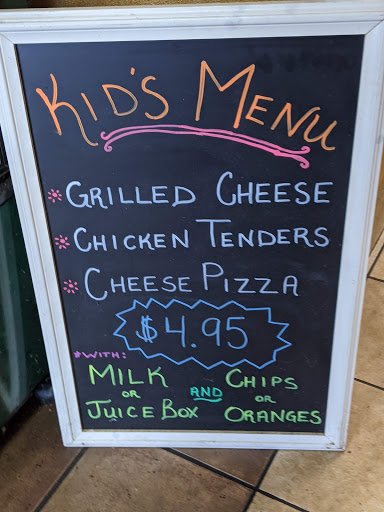 KID'S MENU
* GRILLED CHEESE
* CHICKEN TENDERS
* CHEESE PIZZA
$4.95
*WITH:
MILK OR JUICE BOX AND CHIPS OR ORANGES